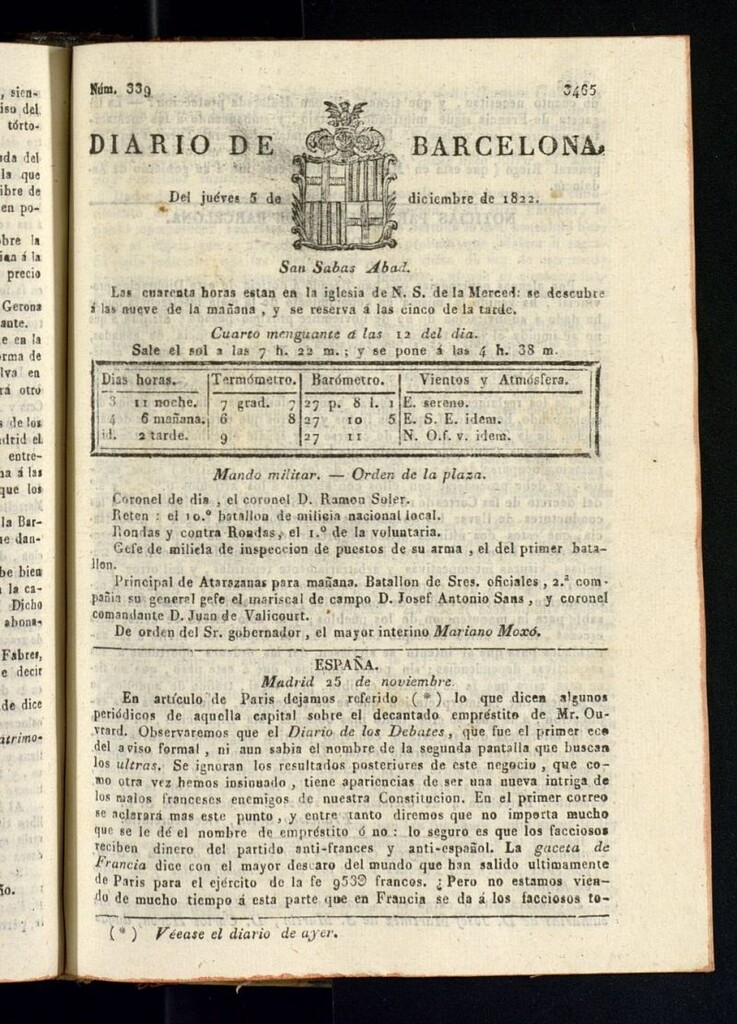 , sien-
iso del
tórto-
da del
la que
ibre de
en po-
bre la
ian á la
precio
Gerona
ante.
e en la
rma de
lva en
rá otro
s de los
drid el
entre-
na á las
que los
la Bar-
e dan-
be bien
la ca-
Dicho
abona-
Fabres,
e decir
de dice
atrimo-
Núm. 339 3465
DIARIO DE BARCELONA,
Del juéves 5 de diciembre de 1822.
San Sabas Abad.
Las cuarenta horas estan en la iglesia de N. S. de la Merced: se descubre
á las nueve de la mañana, y se reserva á las cinco de la tarde.
Cuarto menguante á las 12 del dia.
Sale el sol a las 7 h. 22 m.; y se pone á las 4 h. 38 m.
Dias horas. Termómetro. Barómetro. Vientos y Atmósfera.
3 11 noche. 7 grad. 7 27 p. 8 l. 1 E. sereno.
4 6 mañana. 6 8 27 10 5 E. S. E. idem.
id. 2 tarde. 9 27 11 N. O.f. v. idem.
Mando militar. — Orden de la plaza.
Coronel de dia, el coronel D. Ramon Soler.
Reten: el 10.º batallon de milicia nacional local.
Rondas y contra Rondas, el 1.º de la voluntaria.
Gefe de milicia de inspeccion de puestos de su arma, el del primer bata-
llon.
Principal de Atarazanas para mañana. Batallon de Sres. oficiales, 2.ª com-
pañia su general gefe el mariscal de campo D. Josef Antonio Sans, y coronel
comandante D. Juan de Valicourt.
De orden del Sr. gobernador, el mayor interino Mariano Moxó.
ESPAÑA.
Madrid 25 de noviembre.
En artículo de Paris dejamos referido (*) lo que dicen algunos
periódicos de aquella capital sobre el decantado empréstito de Mr. Ou-
vrard. Observaremos que el Diario de los Debates, que fue el primer eco
del aviso formal, ni aun sabia el nombre de la segunda pantalla que buscan
los ultras. Se ignoran los resultados posteriores de este negocio, que co-
mo otra vez hemos insinuado, tiene apariencias de ser una nueva intriga de
los malos franceses enemigos de nuestra Constitucion. En el primer correo
se aclarará mas este punto, y entre tanto diremos que no importa mucho
que se le dé el nombre de empréstito ó no: lo seguro es que los facciosos
reciben dinero del partido anti-frances y anti-español. La gaceta de
Francia dice con el mayor descaro del mundo que han salido ultimamente
de Paris para el ejército de la fe 953℈ francos. ¿Pero no estamos vien-
do de mucho tiempo á esta parte que en Francia se da á los facciosos to-
(*) Véease el diario de ayer.